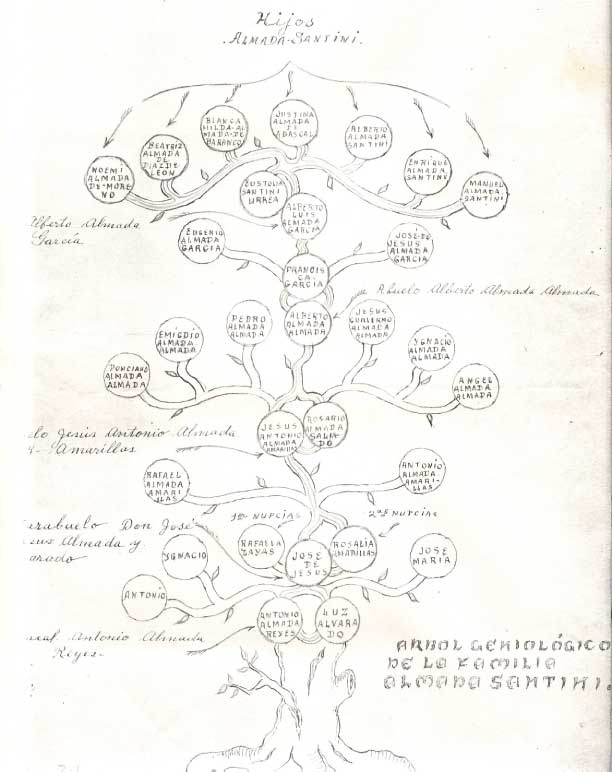 Hijos
.ALMADA-SANTINI.
JUSTINA
ALMADA
DE
ABASCAL
BLANCA
HILDA-AL
MADA-DE
BARANCO
ALBERTO
ALMADA
SANTINI
BEATRIZ
ALMADA
DE
DIAZ DE
LEON
ENRIQUE
ALMADA
SANTINI
NOEMI
ALMADA
DE-MORE
NO
MANUEL
ALMADA
SANTINI
EUSTOLIA
SANTINI
URREA
ALBERTO
LUIS
ALMADA
GARCIA
Alberto Almada
García
EUGENIO
ALMADA
GARCIA
JOSE-DE
JESUS
ALMADA
GARCIA
FRANCIS
CA-
GARCIA
Abuelo Alberto Almada Almada
PEDRO
ALMADA
ALMADA
ALBERTO
ALMADA
ALMADA
JESUS
GUILLERMO
ALMADA
ALMADA
EMIGDIO
ALMADA
ALMADA
YGNACIO
ALMADA
ALMADA
PONCIANO
ALMADA
ALMADA
ANGEL
ALMADA
ALMADA
JESUS
ANTONIO
ALMADA
AMARILLAS
ROSARIO
ALMADA
SALI-
DO
elo Jesús Antonio Almada
Amarillas
RAFAEL
ALMADA
AMARI-
LLAS
ANTONIO
ALMADA
AMARI-
LLAS
1as NUPCIAS
2as NUPCIAS
abuelo Don José
sus Almada y
arado
YGNACIO
RAFAELA
ZAYAS
JOSE
DE
JESUS
ROSALIA
AMARILLAS
JOSE
MARIA
ANTONIO
ANTONIO
ALMADA
REYES
LUZ
ALVARA
DO
Antonio Almada
Reyes
ARBOL GENIOLÓGICO
DE LA FAMILIA
ALMADA SANTINI.